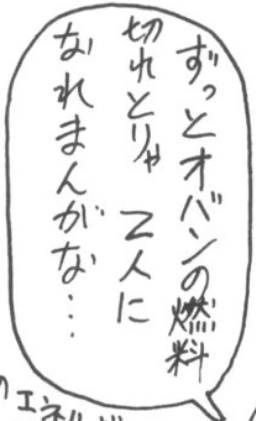 ずっとオバンの燃料
切れとりゃ 2人に
なれまんがな…